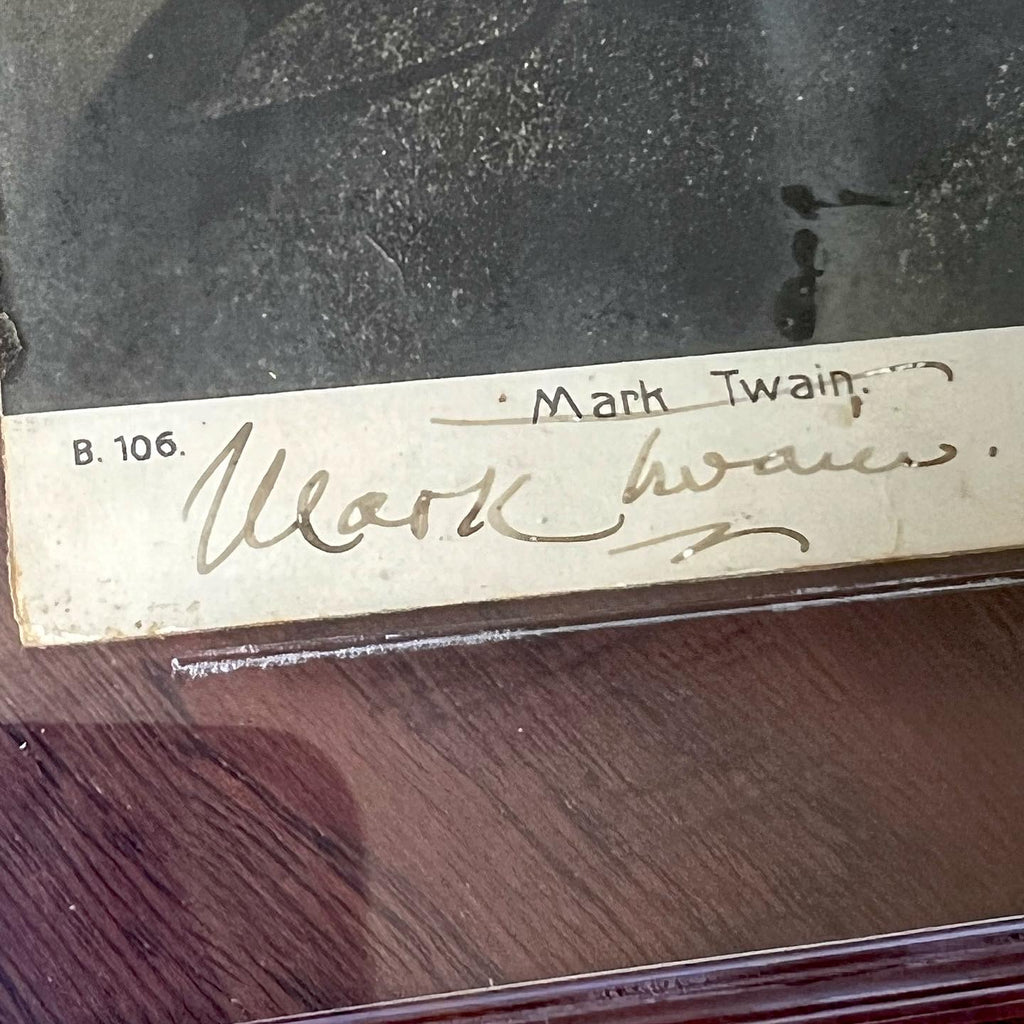 Mark Twain.
B. 106.
Mark Twain.